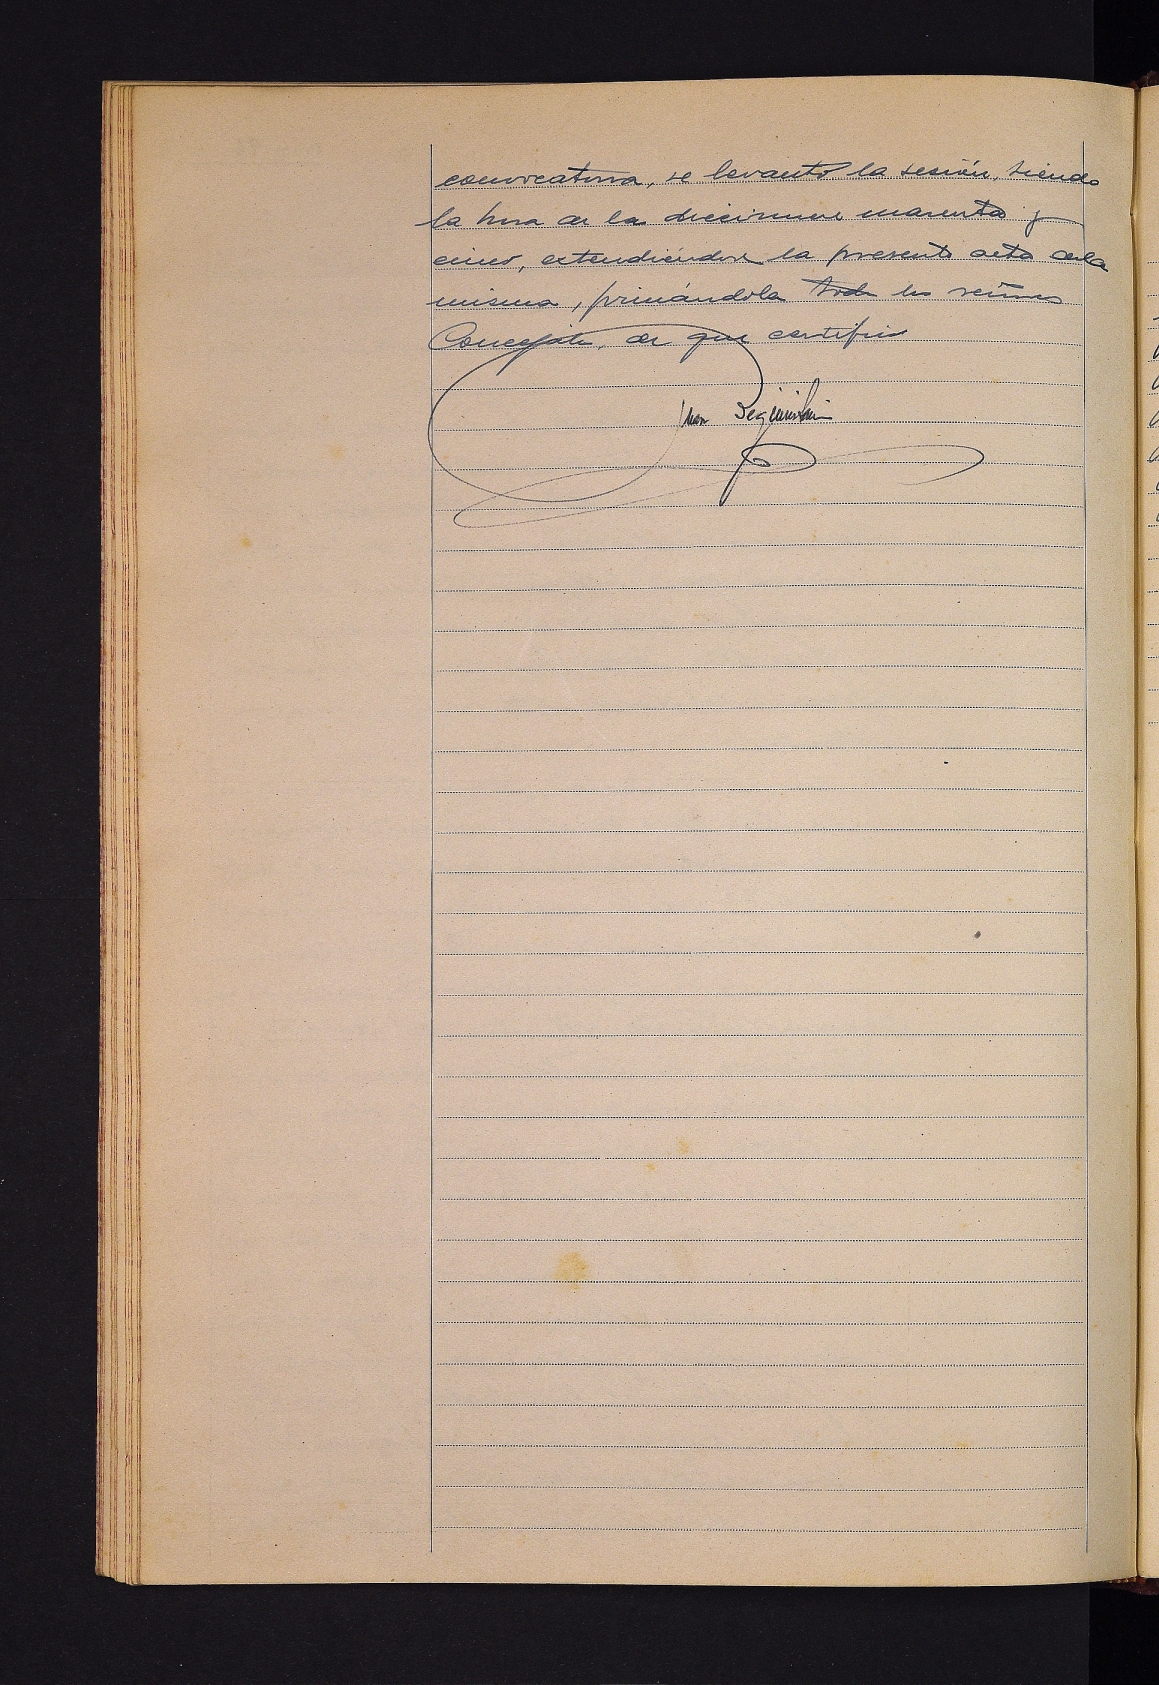 convocatoria, se levantó la sesión, siendo
la hora de la diecinueve cuarenta y
cinco, extendiéndose la presente acta de la
misma, firmándola todos los señores
Concejales, de que certifico
Juan